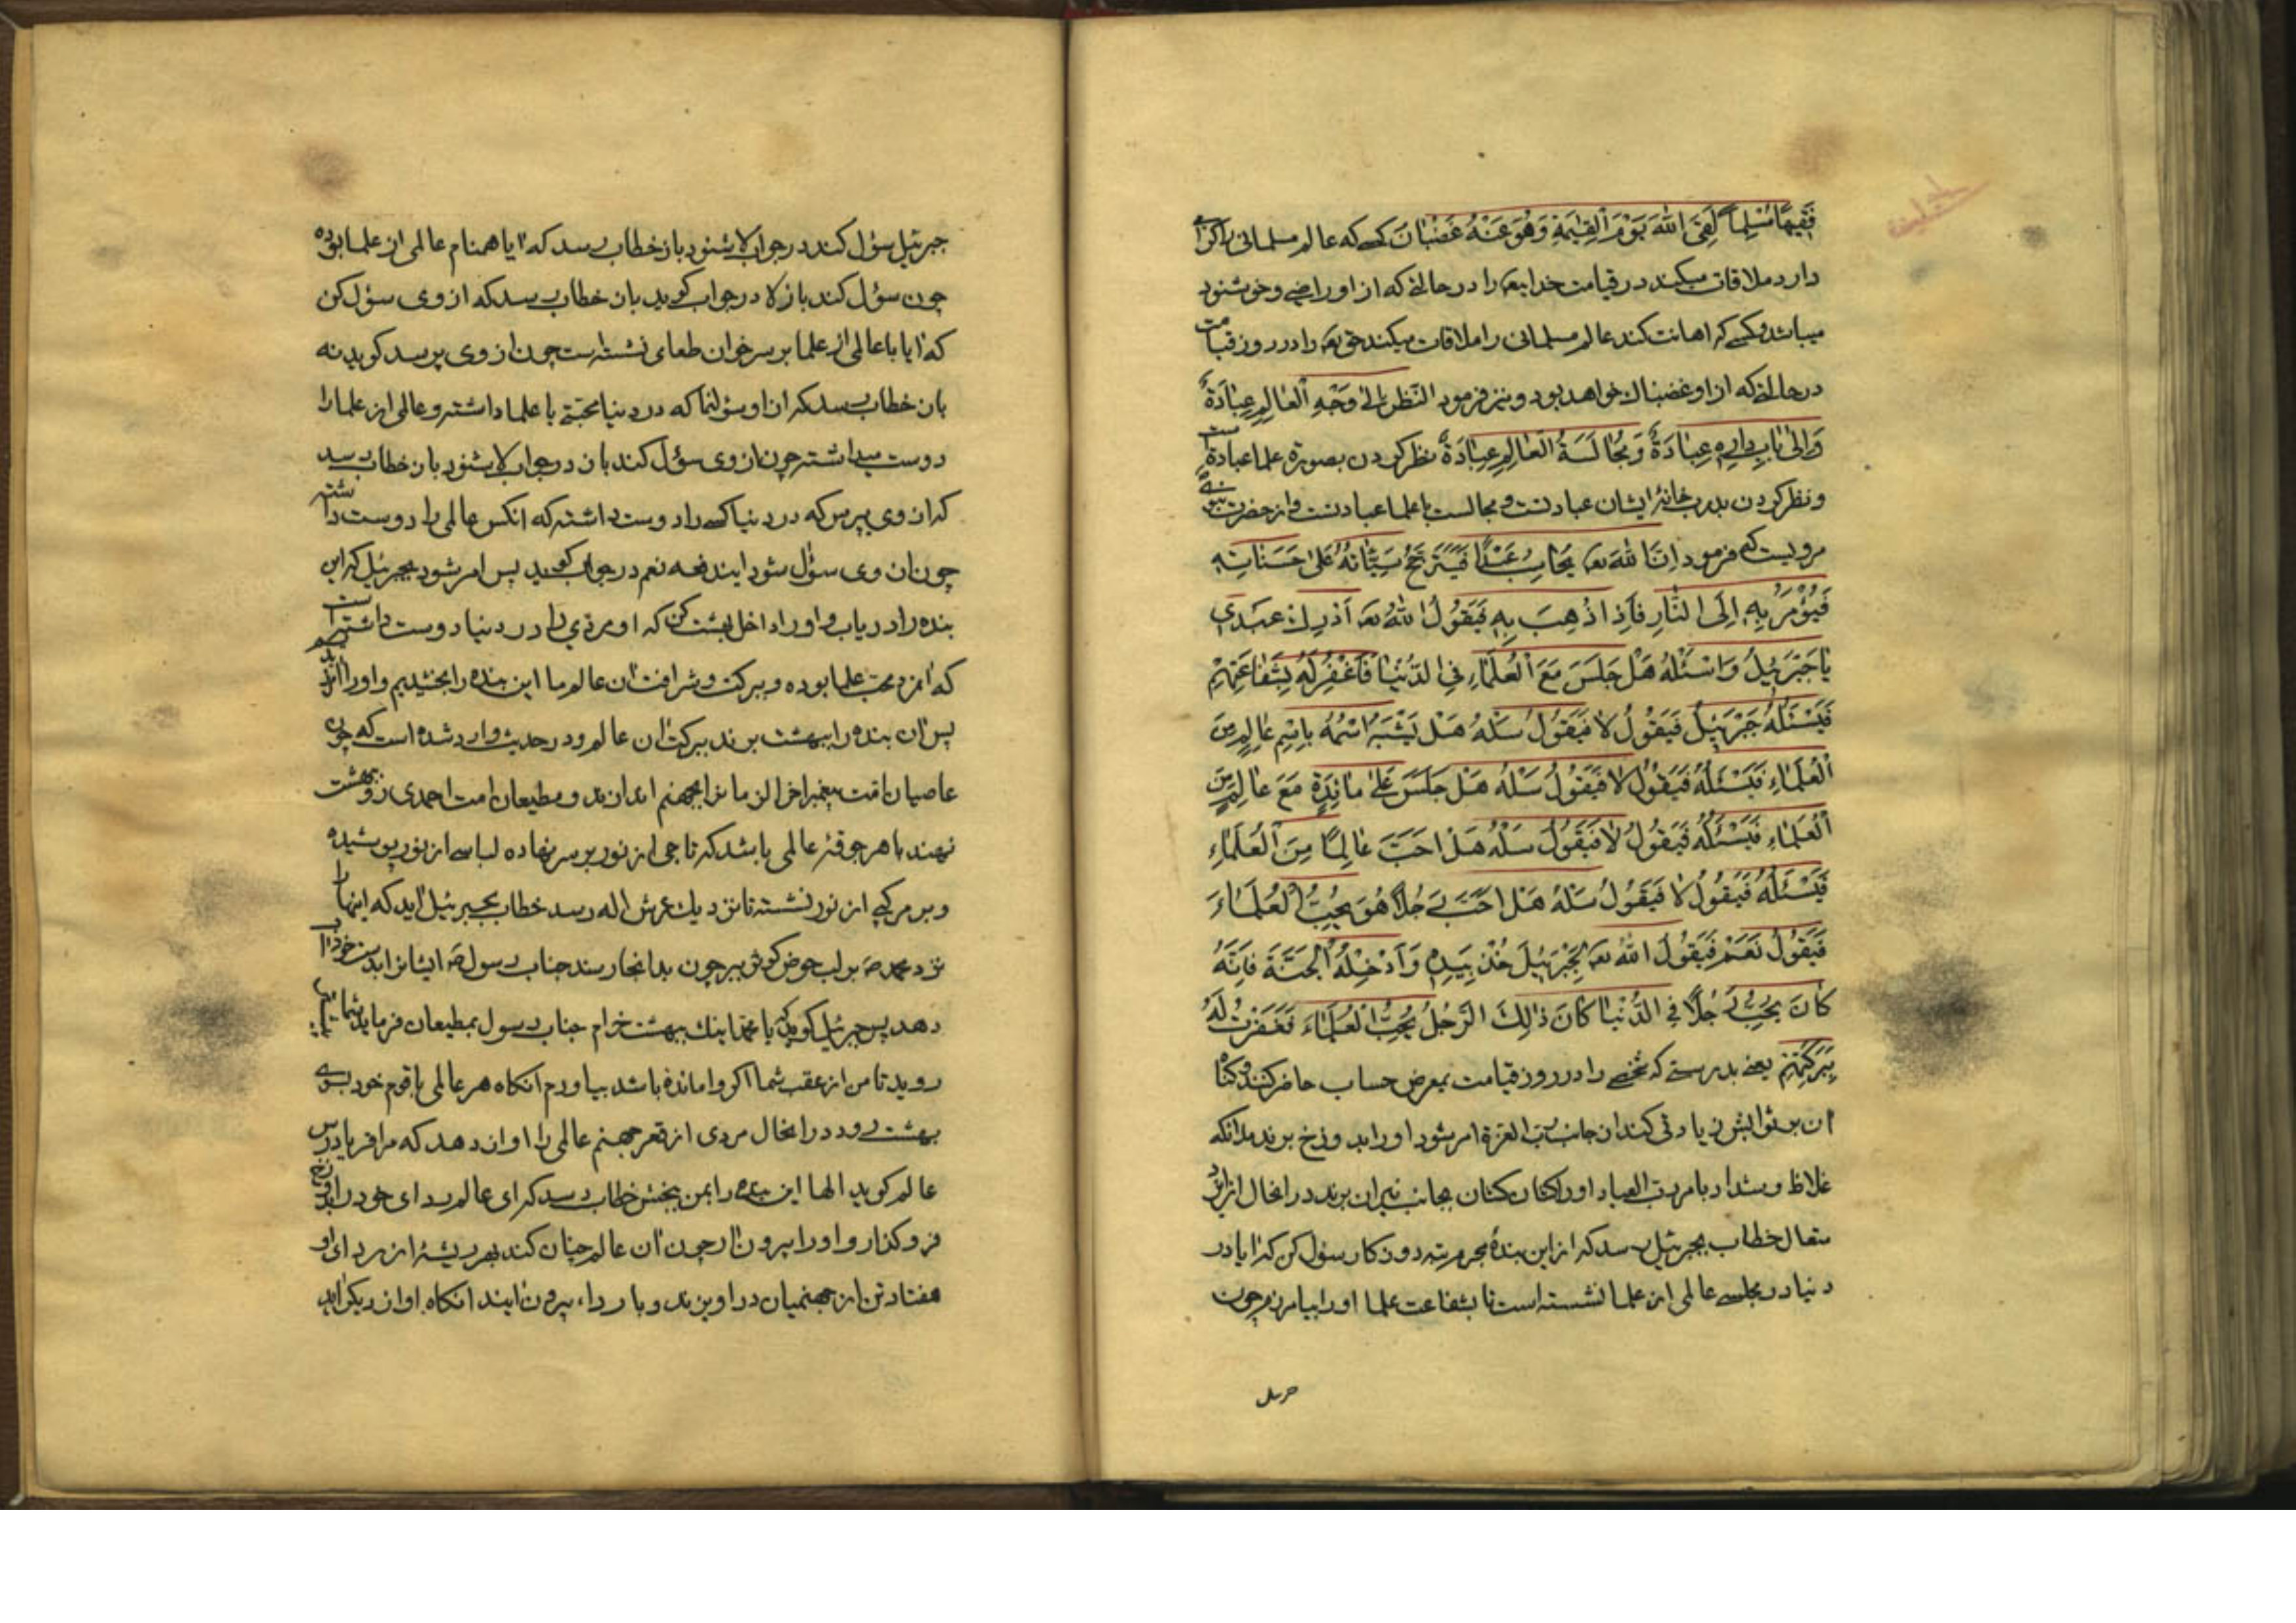 فَقِيهًا مُسْلِماً لَقِیَ اللّٰهَ يَوْمَ الْقِيٰمَةِ وَهُوَ عَنْهُ غَضْبٰانَ کسے که عالم مسلمانی را کرامی
دارد ملاقات میکند در قیامت خدایتعه را در حالتے که از او راضے و خوشنود
میباشد و کسے که اهانت کند عالم مسلمانی را ملاقات میکند حق تعه را در روز قیامت
در حالتے که از او غضبناك خواهد بود و نیز فرمود النَّظَرُ اِلیٰ وَجْهِ الْعٰالِمِ عِبٰادَةٌ
وَاِلیٰ بٰابِ دٰارِهِ عِبٰادَةٌ وَمُجٰالَسَةُ الْعٰالِمِ عِبٰادَةٌ نظر کردن بصورة علما عبادة است
و نظر کردن بدرب خانهٔ ایشان عبادتست و مجالست با علما عبادتست و از حضرت نبوی
مرویست که فرمود اِنَّ اللّٰهَ تعه يُحٰاسِبُ عَبْدًا فَيَتَرَجَّحُ سَيِّئٰاتُهُ عَلیٰ حَسَنٰاتِهِ
فَيُؤْمَرُ بِهِ اِلَی النّٰارِ فَاِذٰا ذُهِبَ بِهِ فَيَقُولُ اللّٰهُ تعه اَدْرِكْ عَبْدِي
يٰا جَبْرَئِيلُ وَاسْئَلْهُ هَلْ جَلَسَ مَعَ الْعُلَمٰاءِ فِي الدُّنْيٰا فَاَغْفِرُ لَهُ بِشَفٰاعَتِهِمْ
فَيَسْئَلُهُ جَبْرَئِيلُ فَيَقُولُ لاٰ فَيَقُولُ سَلْهُ هَلْ يَشْبَهُ اسْمُهُ بِاسْمِ عٰالِمٍ مِنَ
الْعُلَمٰاءِ فَيَسْئَلُهُ فَيَقُولُ لاٰ فَيَقُولُ سَلْهُ هَلْ جَلَسَ عَلیٰ مٰائِدَةٍ مَعَ عٰالِمٍ مِنَ
الْعُلَمٰاءِ فَيَسْئَلُهُ فَيَقُولُ لاٰ فَيَقُولُ سَلْهُ هَلْ اَحَبَّ عٰالِمًا مِنَ الْعُلَمٰاءِ
فَيَسْئَلُهُ فَيَقُولُ لاٰ فَيَقُولُ سَلْهُ هَلْ اَحَبَّ رَجُلاً هُوَ يُحِبُّ الْعُلَمٰاءَ
فَيَقُولُ نَعَمْ فَيَقُولُ اللّٰهُ تعه لِجَبْرَئِيلَ خُذْ بِيَدِهِ وَاَدْخِلْهُ الْجَنَّةَ فَاِنَّهُ
كٰانَ يُحِبُّ رَجُلاً فِي الدُّنْيٰا كٰانَ ذٰلِكَ الرَّجُلُ يُحِبُّ الْعُلَمٰاءَ فَغَفَرْتُ لَهُ
بِبَرَكَتِهِمْ یعنے بدرستے که شخصے را در روز قیامت بمعرض حساب حاضر کنند و کناه
ان بر ثوابش زیادتی کند از جانب رب العزة امر بشود او را بدوزخ برند ملائکه
غلاظ و شداد بامر رب العباد او را کشان کشان بجانب نیران برند در انحال از ایزد
متعال خطاب بجبرئیل رسد که از این بندهٔ مجرم تبه روزکار سؤل کن که ایا در
دنیا در مجلسے عالمی از علما نشسته است تا بشفاعت علما او را بیامرزم چون
جبرئیل سؤل کند در جواب لا شنود باز خطاب رسد که ایا همنام عالمی از علما بوده
چون سؤل کند باز لا در جواب کوید باز خطاب رسد که از وی سؤل کن
که ایا با عالمی از علما بر سر خوان طعامی نشسته است چون از وی پرسد کوید نه
باز خطاب رسد که از او سؤل نما که در دنیا محبتے با علما داشته و عالمی از علما را
دوست میداشته چون از وی سؤل کند باز در جواب لا بشنود باز خطاب رسد
که از وی بپرس که در دنیا کسے را دوست داشته که انکس عالمی را دوست داشته
چون از وی سؤل شود ایندفعه نعم در جواب کوید پس امر شود بجبرئیل که این
بنده را دریاب و او را داخل بهشت کن که او مردی را در دنیا دوست داشته است
که انمرد محب علما بوده و ببرکت و شرافت ان عالم ما این بنده را بخشیدیم و او را
پس ان بنده را ببهشت برند ببرکت ان عالم و در حدیث وارد شده است که چون
عاصیان امت پیغمبر اخر الزمان را بجهنم اندازند و مطیعان امت احمدی رو ببهشت
نهند با هر جوقهٔ عالمی باشد که تاجی از نور بر سر نهاده لباسے از نور پوشیده
و بر مرکبے از نور نشسته تا نزدیك عرش اله رسد خطاب بجبرئیل اید که اینها را
نزد محمد صه بر لب حوض کوثر ببر چون بدانجا رسند جناب رسول صه ایشانرا بدست خود اب
دهد پس جبرئیل کوید که یا محمد اینك ببهشت خرام جناب رسول بمطیعان فرماید شما
روید تا من از عقب شما اکر وامانده باشد بیاورم انکاه هر عالمی با قوم خود بسوی
بهشت رود در انحال مردی از قعر جهنم عالمی را اواز دهد که مرا فریاد رس
عالم کوید الها این بنده را بمن ببخش خطاب رسد که ای عالم ردای خود را بدوزخ
فرو کذار و او را بیرون ار چون ان عالم چنان کند بهر ریشهٔ از ردای او
هفتاد تن از جهنمیان در اویزند و با رداء بیرون ایند انکاه اواز دیکر اید